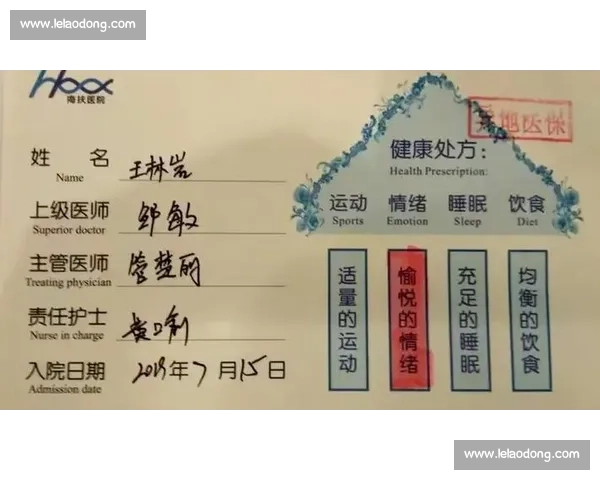 www.lelaodong.com
海扶医院
异地医保
健康处方:
Health Prescription:
运动 情绪 睡眠 饮食
Sports Emotion Sleep Diet
适量的运动
愉悦的情绪
充足的睡眠
均衡的饮食
姓 名 王林岩
Name
上级医师 邹敏
Superior doctor
主管医师 管楚丽
Treating physician
责任护士
Nurse in charge
入院日期 2019年7月15日
Admission date
www.lelaodong.com